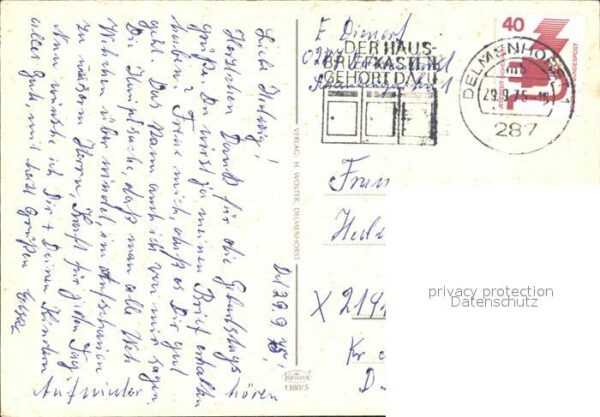 Del 29.9.75,
Liebe Hedwig!
Herzlichen Dank für die Geburtstags
grüße. Du wirst ja meinen Brief erhalten
haben. Freue mich, daß es Dir gut
geht. Das kann auch ich von mir sagen
Die Hauptsache, daß man alle Weh
Wehchen überwindet, im Aufschauen
zu unserm Herrn, Kraft für jeden Tag
Nun wünsche ich Dir + Deinen Kindern
alles Gute mit herzl. Grüßen
Auf wieder hören
VERLAG H. WOSTER, DELMENHORST
Krüger
1380/5
E
DER HAUS-
BRIEFKASTEN
GEHÖRT DAZU
DELMENHORST 1
mb
29.9.75-16
287
40
DEUTSCHE BUNDESPOST
Frau
X 2141
Kr
D
privacy protection
Datenschutz